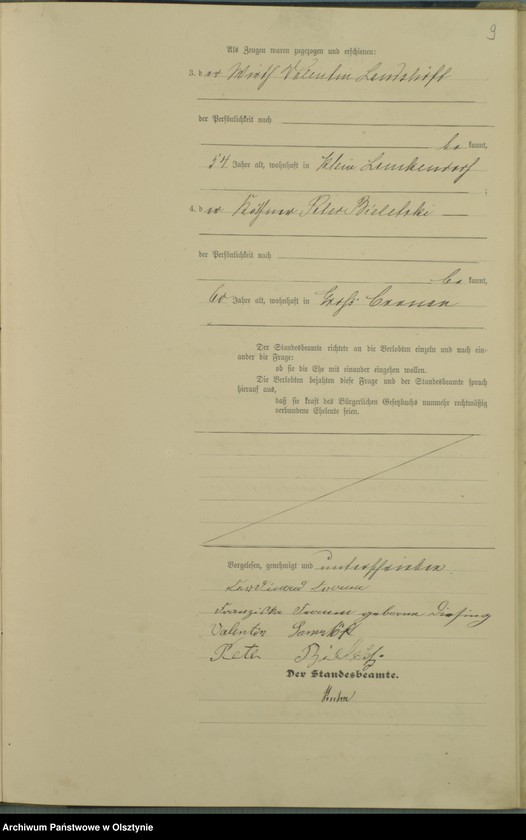 9
Als Zeugen waren zugezogen und erschienen:
3. der Wirth Valentin Lendshöft
der Persönlichkeit nach
be kannt,
54 Jahre alt, wohnhaft in Klein Lemkendorf
;
4. der Käthner Peter Bieletzki
der Persönlichkeit nach
be kannt,
60 Jahre alt, wohnhaft in Groß Cronau
Der Standesbeamte richtete an die Verlobten einzeln und nach ein-
ander die Frage:
ob sie die Ehe mit einander eingehen wollen.
Die Verlobten bejahten diese Frage und der Standesbeamte sprach
hierauf aus,
daß sie kraft des Bürgerlichen Gesetzbuchs nunmehr rechtmäßig
verbundene Eheleute seien.
Vorgelesen, genehmigt und unterschrieben
Ferdinand
Franziska geborene Diesing
Valentin
Peter
Der Standesbeamte.
Archiwum Państwowe w Olsztynie